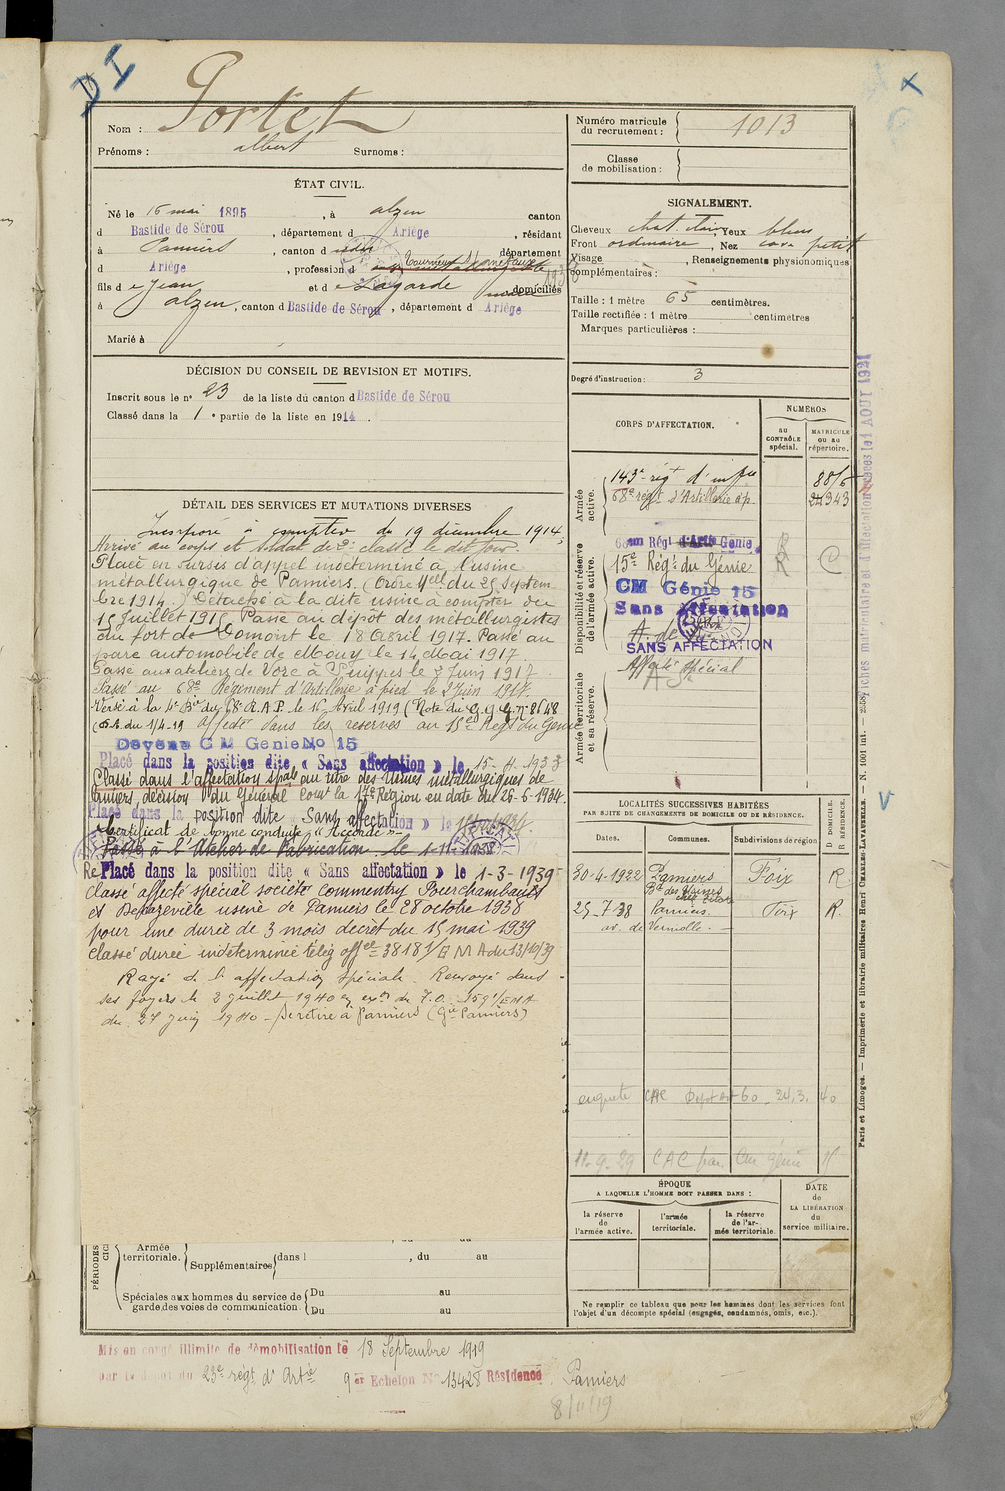 DI
Nom : Portet
Prénoms : albert Surnoms :
Numéro matricule du recrutement : 1013
Classe de mobilisation :
ÉTAT CIVIL.
Né le 16 mai 1895, à alzen canton
d Bastide de Sérou, département d Ariège, résidant
à Pamiers, canton d département
d Ariège, profession d
fils d e Jean et d e Lagarde domiciliés
à alzen, canton d Bastide de Sérou, département d Ariège
Marié à
SIGNALEMENT.
Cheveux chat. clair, Yeux bleus
Front ordinaire, Nez cave petit
Visage , Renseignements physionomiques
complémentaires :
Taille : 1 mètre 65 centimètres.
Taille rectifiée : 1 mètre centimètres
Marques particulières :
Degré d'instruction : 3
DÉCISION DU CONSEIL DE REVISION ET MOTIFS.
Inscrit sous le n° 23 de la liste du canton d Bastide de Sérou
Classé dans la 1e partie de la liste en 1914.
DÉTAIL DES SERVICES ET MUTATIONS DIVERSES
Incorporé à compter du 19 décembre 1914,
Arrivé au corps et soldat de 2e classe le dit jour.
Placé en sursis d'appel indéterminé à l'usine
métallurgique de Pamiers. (Ordre Mel du 25 Septem-
bre 1914.) Détaché à la dite usine à compter du
15 Juillet 1915 Passé au dépôt des métallurgistes
du fort de Domont le 18 Avril 1917. Passé au
parc automobile de Mouy le 14 Mai 1917.
Passé aux ateliers de Voie à Suippes le 3 Juin 1917
Passé au 68e Régiment d'Artillerie à pied le 2 Juin 1917.
Versé à la 4e Bie du 68e R.A.P. le 16 Avril 1919 (Note du G.Q.G. n° 8648
du 1/4-19 affecté dans les réserves au 15e Régt du Génie
Devenu CM Génie No 15
Placé dans la position dite « Sans affectation » le 15-4-1933
Classé dans l'affectation spale au titre des Usines métallurgiques de
Pamiers, décision du Général Comt la 17e Région en date du 26-6-1934.
Placé dans la position dite Sans affectation » le
Certificat de bonne conduite « Accordé »
Passé à l'Atelier de Fabrication le 1-11-1938
Re Placé dans la position dite « Sans affectation » le 1-3-1939
Classé affecté spécial société Commentry Fourchambault
et Decazeville usine de Pamiers le 28 octobre 1938
pour une durée de 3 mois décret du 15 mai 1939
Classé durée indéterminée télég offel 38181/EMA du 13/10/39
Rayé de l'affectation spéciale. Renvoyé dans
ses foyers le 2 juillet 1940 en exon du T.O. 1591/EMA
du 27 juin 1940 - se retire à Pamiers (Gie Pamiers)
CORPS D'AFFECTATION.
NUMÉROS
au CONTRÔLE spécial.
MATRICULE ou au répertoire.
Armée active.
143e rég d'infie
68e régt d'Artillerie à p.
Disponibilité et réserve de l'armée active.
Régt Génie
15e Régt du Génie
CM Génie 15
Sans Affectation
SANS AFFECTATION
Affecté Spécial
Armée territoriale et sa réserve.
LOCALITÉS SUCCESSIVES HABITÉES
PAR SUITE DE CHANGEMENTS DE DOMICILE OU DE RÉSIDENCE.
Dates. Communes. Subdivisions de région. D DOMICILE. R RÉSIDENCE.
30-4-1922 Pamiers Foix R
25-7-38 Pamiers Foix R.
av. de Verniolle.
enquête CAC 24.3.40
11-9-29 CAC
ÉPOQUE
A LAQUELLE L'HOMME DOIT PASSER DANS :
la réserve de l'armée active.
l'armée territoriale.
la réserve de l'armée territoriale.
DATE de LA LIBÉRATION du service militaire.
Ne remplir ce tableau que pour les hommes dont les services font
l'objet d'un décompte spécial (engagés, condamnés, omis, etc.).
PÉRIODES
Armée territoriale. Supplémentaires dans l , du au
Spéciales aux hommes du service de garde des voies de communication. Du au
Du au
Mis en congé illimité de démobilisation le 18 Septembre 1919
par le dépôt du 23e régt d'Artie 9e Echelon No 13428 Résidence Pamiers
8/11/19
Paris et Limoges. — Imprimerie et librairie militaires Henri CHARLES-LAVAUZELLE. — N. 1001 int.